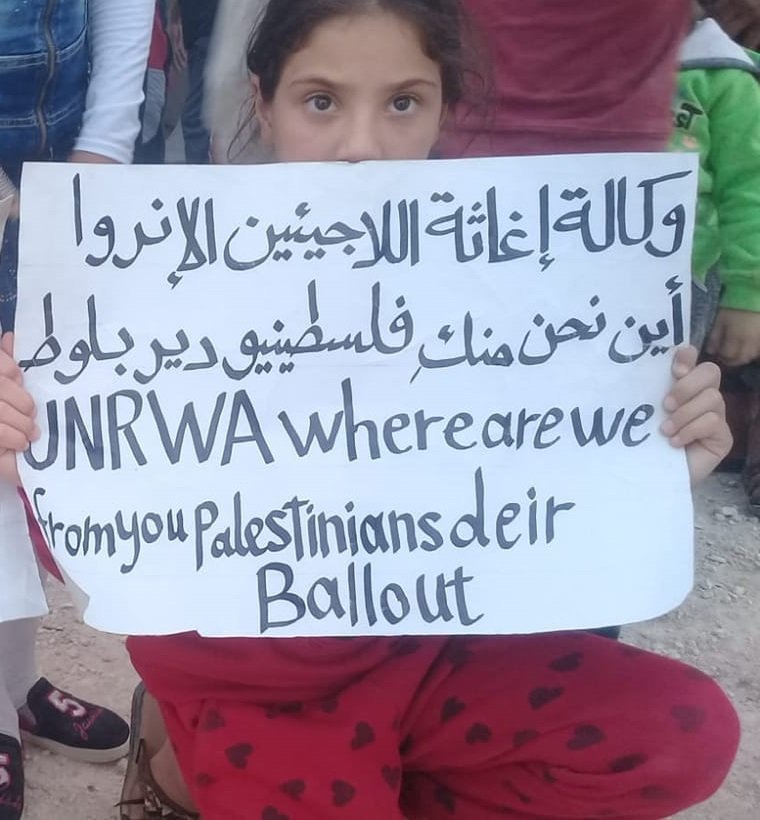 وكالة إغاثة اللاجيئين الإنروا
أين نحن منكِ فلسطينيو دير بلوط
UNRWA where are we
from you Palestinians deir
Ballout
5